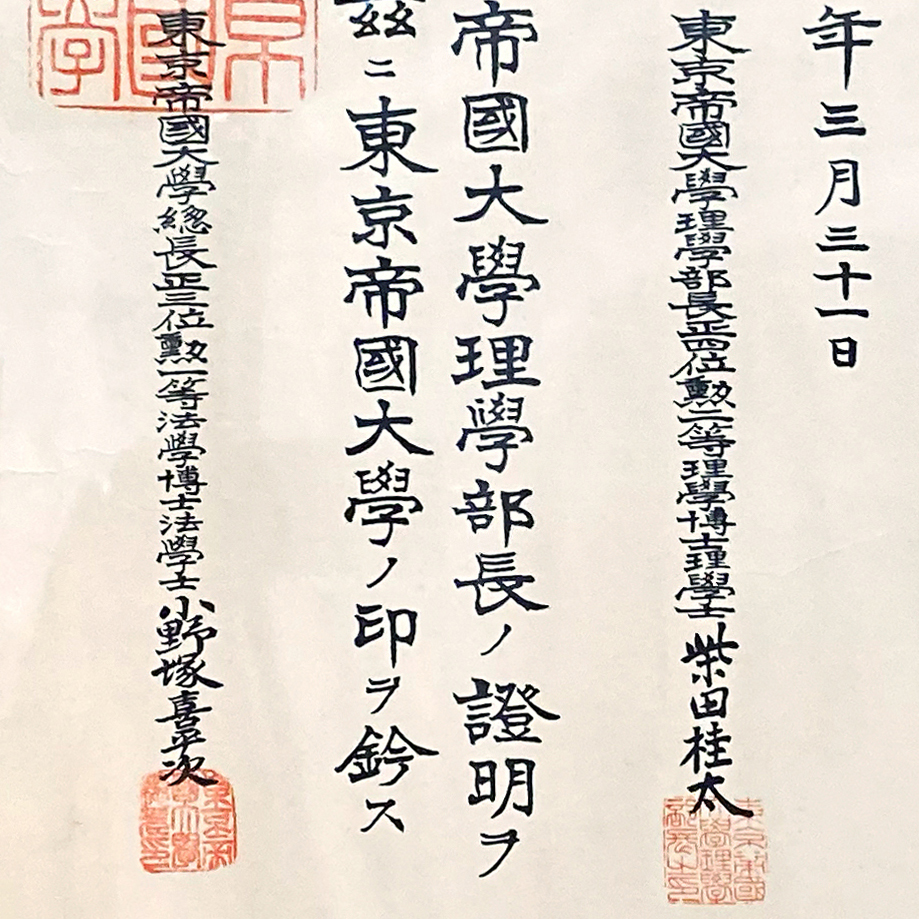 年三月三十一日
東京帝國大學理學部長正四位勲二等理學博士理學士柴田桂太
帝國大學理學部長ノ證明ヲ
茲ニ東京帝國大學ノ印ヲ鈐ス
東京帝國大學總長正三位勲一等法學博士法學士小野塚喜平次